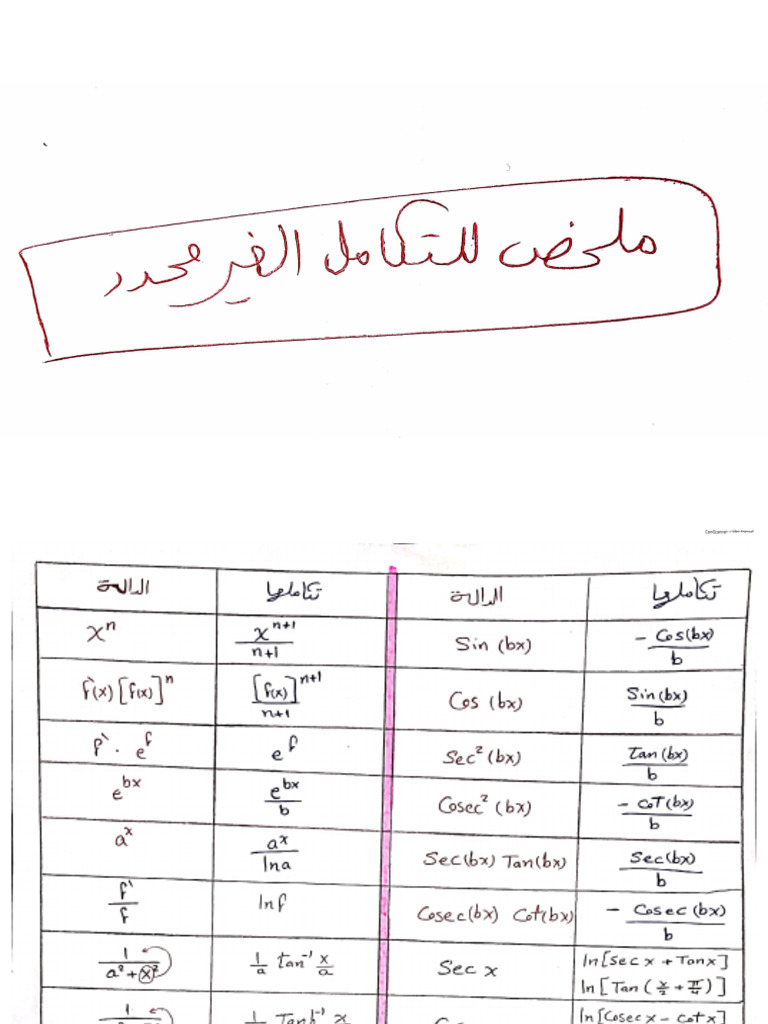 ملخص للتكامل الغير محدد
الدالة | تكاملها | الدالة | تكاملها
xⁿ | xⁿ⁺¹/(n+1) | Sin (bx) | - Cos(bx)/b
f`(x) [f(x)]ⁿ | [f(x)]ⁿ⁺¹/(n+1) | Cos (bx) | Sin(bx)/b
f` . e^f | e^f | Sec² (bx) | tan(bx)/b
e^bx | e^bx/b | Cosec² (bx) | - Cot(bx)/b
a^x | a^x/lna | Sec(bx) Tan(bx) | Sec(bx)/b
f`/f | lnf | Cosec(bx) Cot(bx) | - Cosec(bx)/b
1/(a²+x²) | 1/a tan⁻¹ x/a | Sec x | ln[Sec x + Tan x]
ln[Tan(x/2 + π/4)]
1 | 1 Tanh⁻¹ x | ln[Cosec x - Cot x]